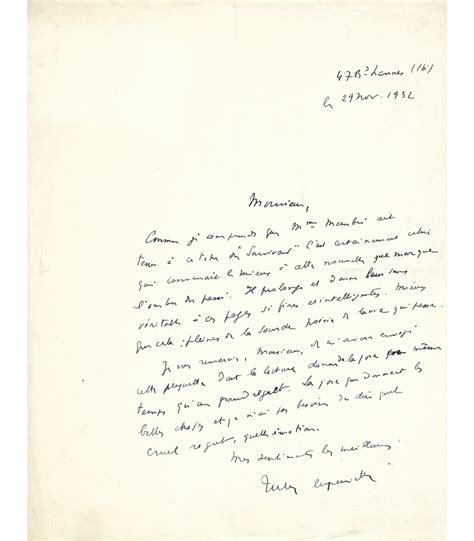 47 Bd Lannes (16e)
le 29 Nov. 1932
Monsieur,
Comme je comprends que Mme ait
tenu à ce titre du "Survivant" C'est certainement celui
qui convenait le mieux à cette nouvelle que marque
l'ombre du passé. Il prolonge et donne sens
véritable à ces pages si fines et intelligentes. Mieux
que cela : pleines de la sourde poésie de la vie qui passe.
Je vous remercie, Monsieur, de m'avoir envoyé
cette plaquette dont la lecture donne de la joie en même
temps qu'un grand regret. La joie que donnent les
belles choses et je n'ai pas besoin de dire quel
cruel regret, quelle émotion.
Mes sentiments les meilleurs.
Jules Supervielle